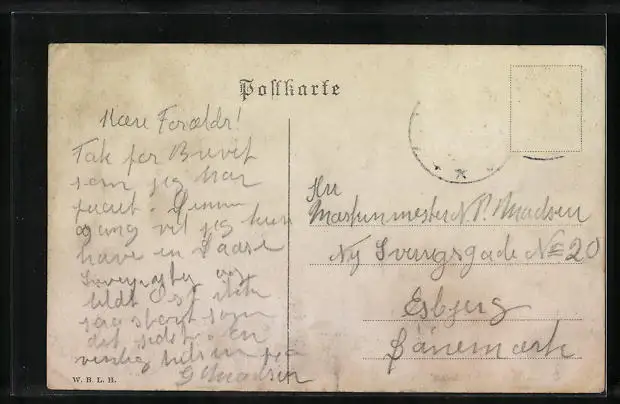 Postkarte
Kære Forældr!
Tak for Brevet
som jeg har
faaet. Denne
gang vil jeg kun
have en Daase
og
lidt Ost ikke
saa stort som
det sidst. en
venlig hilsen fra
G Madsen
W. B. L. H.
Hr
Maskinmester N. P. Madsen
Ny Svingsgade No 20
Esbjerg
Dänemark